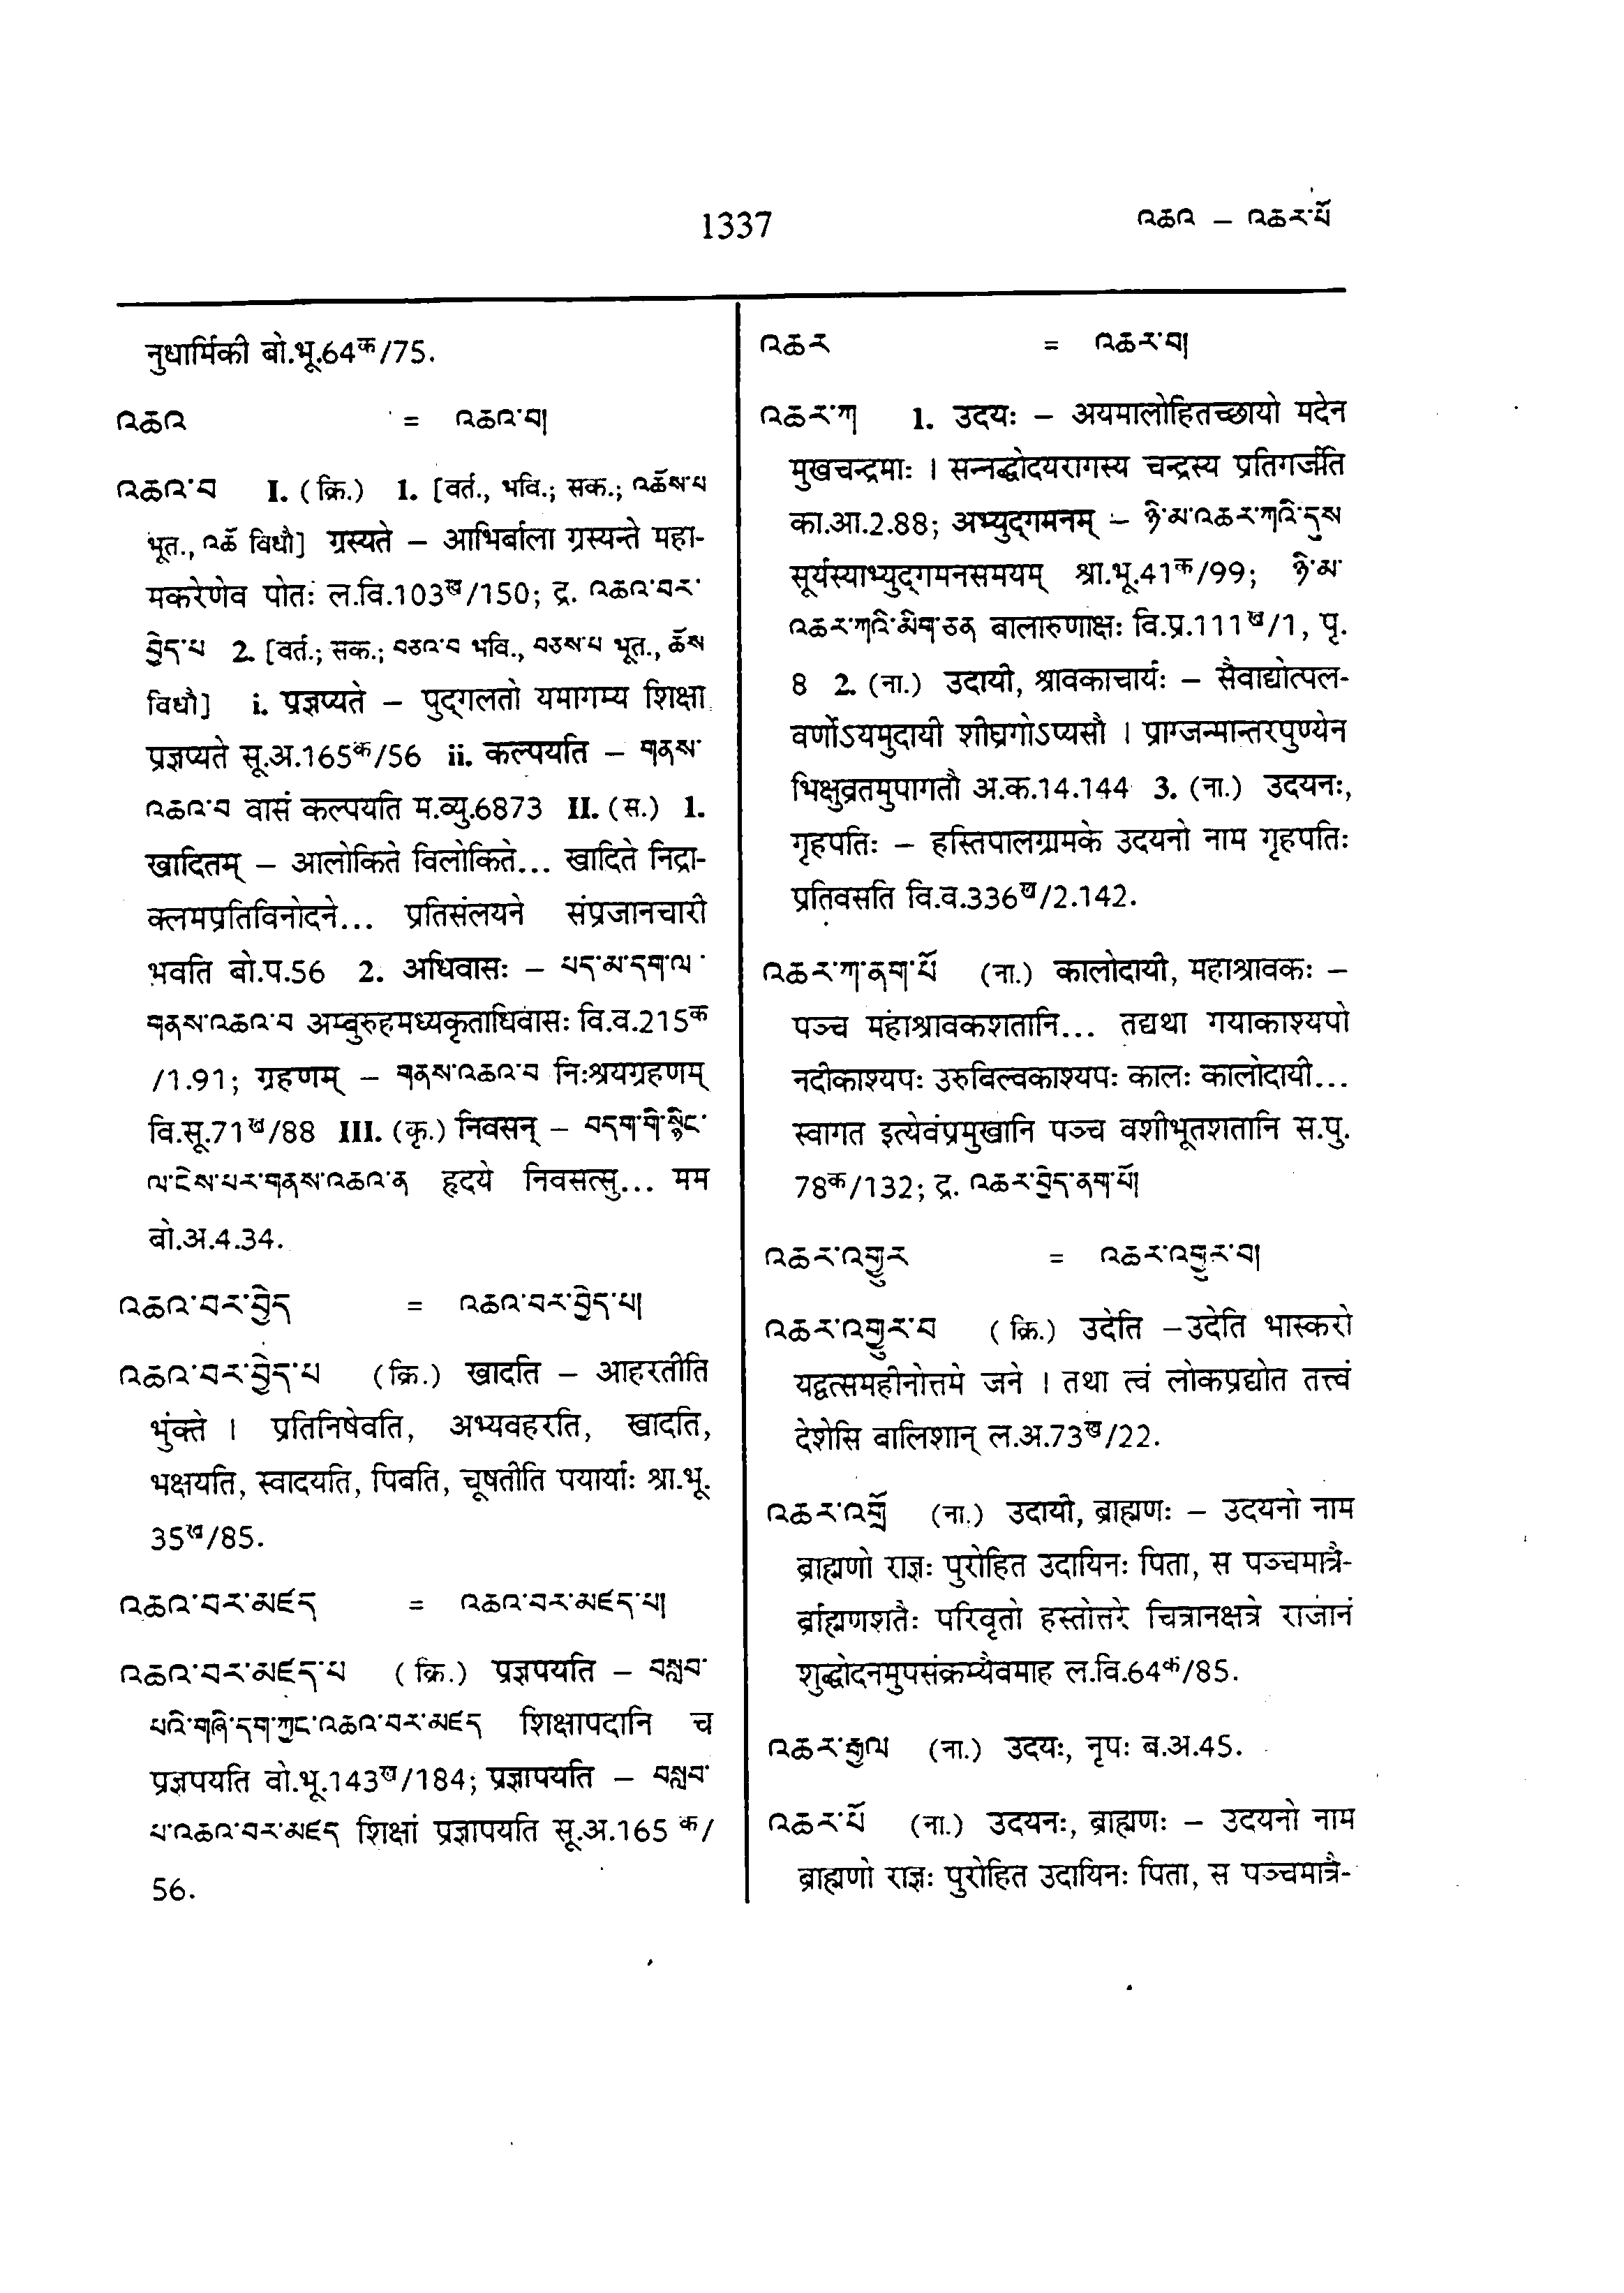 1337
འཆའ – འཆར་པོ
नुधार्मिकी बो.भू.64क/75.
འཆའ = འཆའ་བ།
འཆའ་བ I. (क्रि.) 1. [वर्त., भवि.; सक.; འཆོས་པ
भूत., འཆོ विधौ] ग्रस्यते – आभिर्बाला ग्रस्यन्ते महा-
मकरेणेव पोतः ल.वि.103ख/150; द्र. འཆའ་བར་
བྱེད་པ 2. [वर्त.; सक.; བཅའ་བ भवि., བཅས་པ भूत., ཆོས
विधौ] i. प्रज्ञप्यते – पुद्गलतो यमागम्य शिक्षा
प्रज्ञप्यते सू.अ.165क/56 ii. कल्पयति – གནས་
འཆའ་བ वासं कल्पयति म.व्यु.6873 II. (स.) 1.
खादितम् – आलोकिते विलोकिते... खादिते निद्रा-
क्लमप्रतिविनोदने... प्रतिसंलयने संप्रजानचारी
भवति बो.प.56 2. अधिवासः – པད་མ་དག་ལ་
གནས་འཆའ་བ अम्बुरुहमध्यकृताधिवासः वि.व.215क
/1.91; ग्रहणम् – གནས་འཆའ་བ निःश्रयग्रहणम्
वि.सू.71ख/88 III. (कृ.) निवसन् – བདག་གི་སྙིང་
ལ་ངེས་པར་གནས་འཆའ་ན हृदये निवसत्सु... मम
बो.अ.4.34.
འཆའ་བར་བྱེད = འཆའ་བར་བྱེད་པ།
འཆའ་བར་བྱེད་པ (क्रि.) खादति – आहरतीति
भुंक्ते । प्रतिनिषेवति, अभ्यवहरति, खादति,
भक्षयति, स्वादयति, पिवति, चूषतीति पयार्याः श्रा.भू.
35ख/85.
འཆའ་བར་མཛད = འཆའ་བར་མཛད་པ།
འཆའ་བར་མཛད་པ (क्रि.) प्रज्ञपयति – བསླབ་
པའི་གཞི་དག་ཀྱང་འཆའ་བར་མཛད शिक्षापदानि च
प्रज्ञपयति वो.भू.143ख/184; प्रज्ञापयति – བསླབ་
པ་འཆའ་བར་མཛད शिक्षां प्रज्ञापयति सू.अ.165 क/
56.
འཆར = འཆར་བ།
འཆར་ཀ 1. उदयः – अयमालोहितच्छायो मदेन
मुखचन्द्रमाः । सन्नद्धोदयरागस्य चन्द्रस्य प्रतिगर्जति
का.आ.2.88; अभ्युद्गमनम् – ཉི་མ་འཆར་ཀའི་དུས
सूर्यस्याभ्युद्गमनसमयम् श्रा.भू.41क/99; ཉི་མ་
འཆར་ཀའི་མིག་ཅན बालारुणाक्षः वि.प्र.111ख/1, पृ.
8 2. (ना.) उदायी, श्रावकाचार्यः – सैवाद्योत्पल-
वर्णोऽयमुदायी शीघ्रगोऽप्यसौ । प्राग्जन्मान्तरपुण्येन
भिक्षुव्रतमुपागतौ अ.क.14.144 3. (ना.) उदयनः,
गृहपतिः – हस्तिपालग्रामके उदयनो नाम गृहपतिः
प्रतिवसति वि.व.336ख/2.142.
འཆར་ཀ་ནག་པོ (ना.) कालोदायी, महाश्रावकः –
पञ्च महाश्रावकशतानि... तद्यथा गयाकाश्यपो
नदीकाश्यपः उरुविल्वकाश्यपः कालः कालोदायी...
स्वागत इत्येवंप्रमुखानि पञ्च वशीभूतशतानि स.पु.
78क/132; द्र. འཆར་བྱེད་ནག་པོ།
འཆར་འགྱུར = འཆར་འགྱུར་བ།
འཆར་འགྱུར་བ (क्रि.) उदेति –उदेति भास्करो
यद्वत्समहीनोत्तमे जने । तथा त्वं लोकप्रद्योत तत्त्वं
देशेसि बालिशान् ल.अ.73ख/22.
འཆར་འགྲོ (ना.) उदायी, ब्राह्मणः – उदयनो नाम
ब्राह्मणो राज्ञः पुरोहित उदायिनः पिता, स पञ्चमात्रै-
र्ब्राह्मणशतैः परिवृतो हस्तोत्तरे चित्रानक्षत्रे राजानं
शुद्धोदनमुपसंक्रम्यैवमाह ल.वि.64क/85.
འཆར་རྒྱལ (ना.) उदयः, नृपः ब.अ.45.
འཆར་པོ (ना.) उदयनः, ब्राह्मणः – उदयनो नाम
ब्राह्मणो राज्ञः पुरोहित उदायिनः पिता, स पञ्चमात्रै-